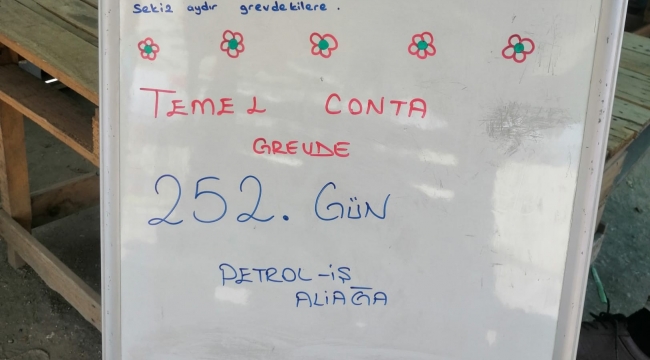 Sekiz aydır grevdekilere.
TEMEL CONTA
GREVDE
252. GÜN
PETROL-İŞ
ALİAĞA